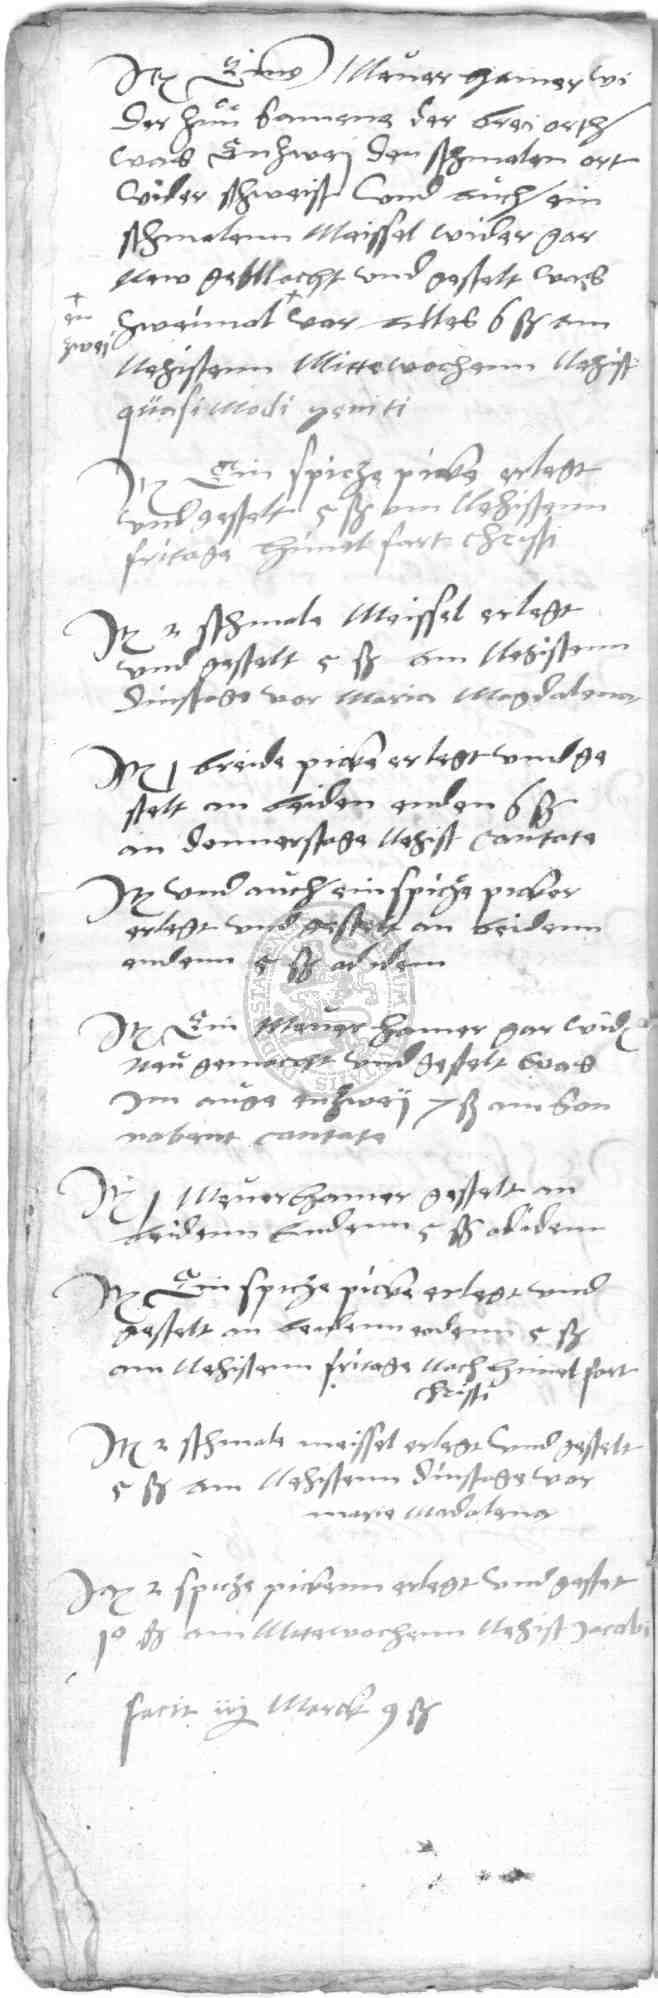 Itᛗ Einen Meuer hamer wi
der zuu samene der brei orth
was Enzwej den schmalen ort
wider schweist Und auch ein
schmalenn Meissel wider gar
New gemacht und gestelt was
en
zwej
zweimol var alles 6 ß am
Nehistenn Mittewochenn Nehist
quasi Modi geniti
Itm Ein spicze picke erlegt
und gestelt 5 ß am Nehistenn
fritage himel fart Christi
Itm 2 schmale Meissel erlegt
und gestelt 5 ß am Nehistenn
Dinstage vor Maria Magdalena
Itm 1 breide picke erlegt und ge
stelt an beiden enden 6 ß
an donnerstage Nehist Cantate
Itm und auch ein spicze picker
erlegt und gestelt an beidenn
endenn 5 ß ad idem
Itm Ein Meuer hamer gar wid
neu gemacht und gestelt was
Im auge enzweij 7 ß am Son
nabent Cantate
Itm 1 Meuer hamer gestelt an
beidenn Endenn 5 ß ad idem
Itm Ein spicze picke erlegt und
gestelt an beidenn endenn 5 ß
am Nehistenn fritage Nach himel fart
Christi
Itm 2 schmale meissel erlegt und gestelt
5 ß am Nehistenn Dinstage vor
marie Madalena
Itm 2 spicze pickenn erlegt und gestet
10 ß am Mittewochenn Nehist Jacobi
facit iiij Marck 9 ß